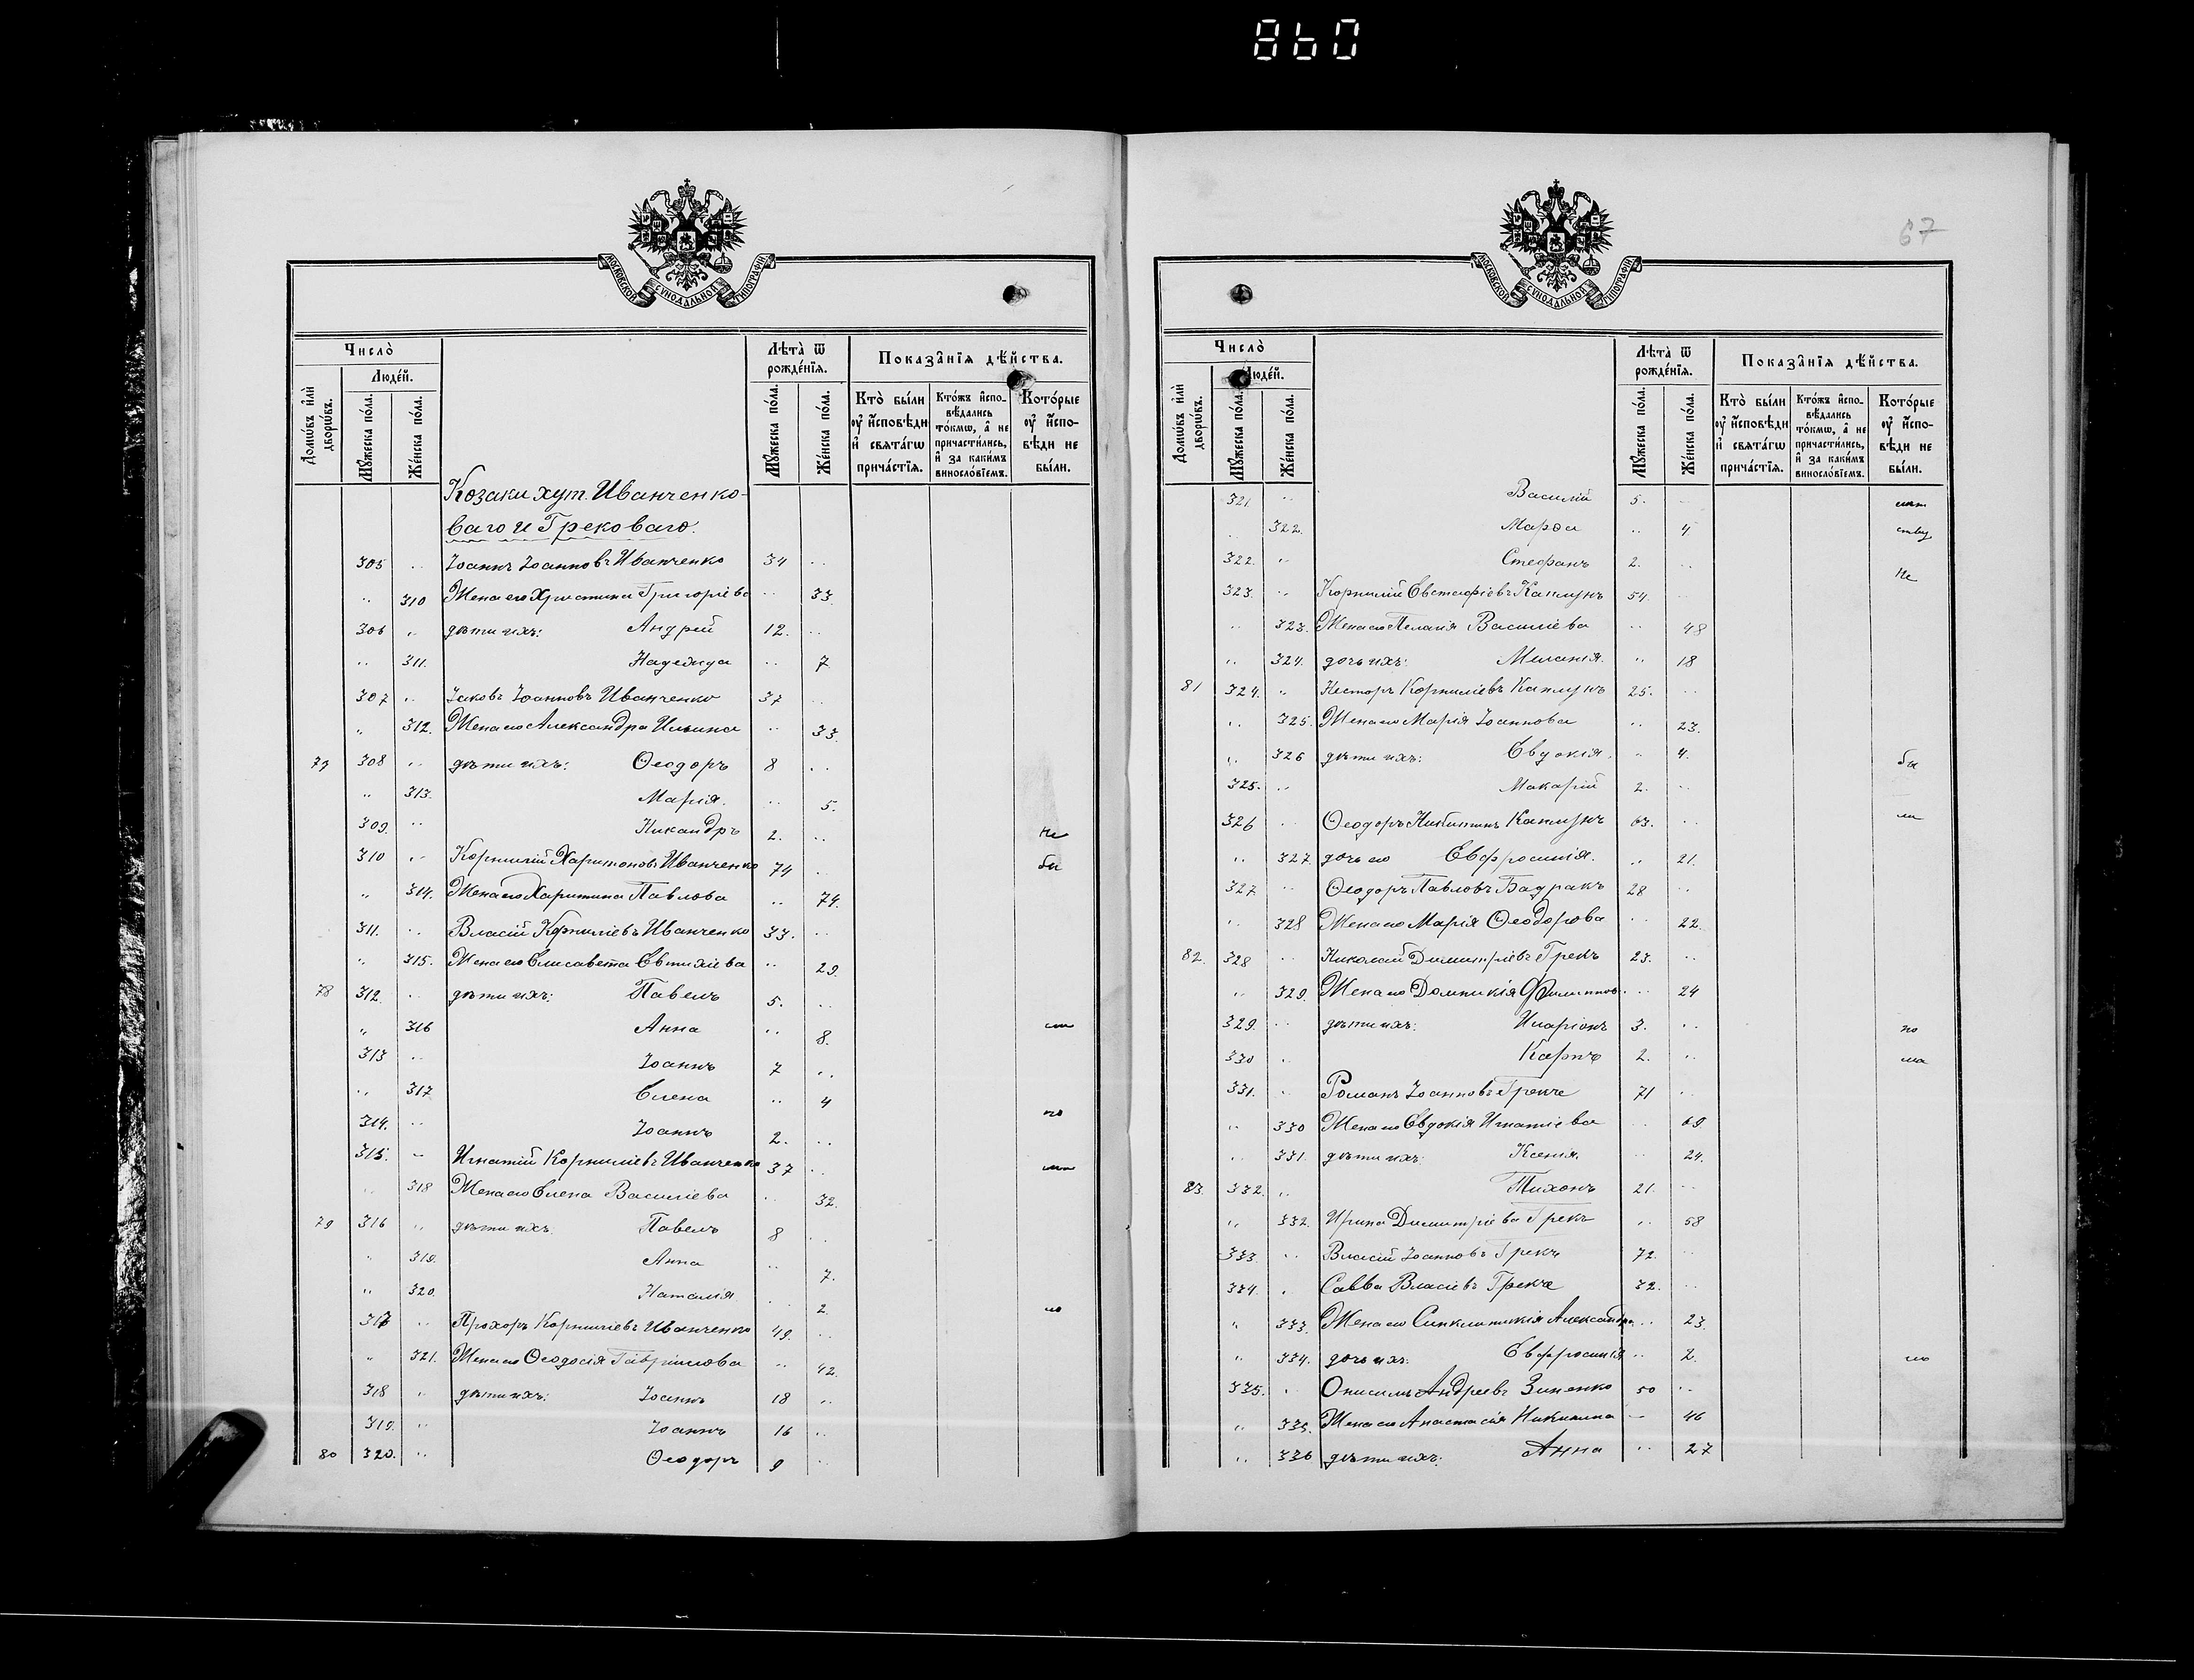 860
МОСКОВСКОЙ СѴНОДАЛЬНОЙ ТИПОГРАФІИ
Число̀
Людéй.
Домѡ́въ и҆лѝ дворѡ́въ.
Мꙋ́жеска по́ла.
Же́нска по́ла.
Лѣта̀ ѿ рожде́нїѧ.
Мꙋ́жеска по́ла.
Же́нска по́ла.
Показа̑нїѧ дѣ́йства.
Кто̀ бы́ли оу҆ и҆сповѣди и҆ свѧта́гѡ прича́стїѧ.
Кто́жъ и҆сповѣдались то́кмѡ, а҆ не причасти́лись, и҆ за каки́мъ винослóвїемъ.
Кото́рые оу҆ и҆сповѣди не бы́ли.
Козаки хут. Иванченко-
ваго и Грековаго.
305 .. Іоаннъ Іоанновъ Иванченко 34 ..
.. 310 Жена его Христина Григоріева .. 33.
306 .. дѣти ихъ: Андрей 12. ..
.. 311. Надежда .. 7
307 .. Іаковъ Іоанновъ Иванченко 37 ..
.. 312. Жена его Александра Ильина .. 33.
77 308 .. дѣти ихъ: Ѳеодоръ 8 ..
.. 313. Марія. .. 5.
309. .. Никандръ 2. .. не
310 .. Корнилій Харитоновъ Иванченко 74 .. бы
.. 314. Жена его Харитина Павлова .. 74.
311. .. Власій Корниліевъ Иванченко 33. ..
.. 315. Жена его Елисавета Евтихіева .. 29.
78 312. .. дѣти ихъ: Павелъ 5. ..
.. 316 Анна .. 8.
313 .. Іоаннъ 7 ..
.. 317 Елена .. 4
314. .. Іоаннъ 2. .. по
315. .. Игнатій Корниліевъ Иванченко 37 ..
.. 318 Жена его Елена Василіева .. 32.
79 316 .. дѣти ихъ: Павелъ 8 ..
.. 319. Анна .. 7.
.. 320. Наталія .. 2.
317 .. Прохоръ Корниліевъ Иванченко 49. ..
.. 321. Жена его Ѳеодосія Гавріилова .. 42.
318 .. дѣти ихъ: Іоаннъ 18 ..
319. .. Іоаннъ 16 ..
80 320. .. Ѳеодоръ 9 ..
67
МОСКОВСКОЙ СѴНОДАЛЬНОЙ ТИПОГРАФІИ
Число̀
Людéй.
Домѡ́въ и҆лѝ дворѡ́въ.
Мꙋ́жеска по́ла.
Же́нска по́ла.
Лѣта̀ ѿ рожде́нїѧ.
Мꙋ́жеска по́ла.
Же́нска по́ла.
Показа̑нїѧ дѣ́йства.
Кто̀ бы́ли оу҆ и҆сповѣди и҆ свѧта́гѡ прича́стїѧ.
Кто́жъ и҆сповѣдались то́кмѡ, а҆ не причасти́лись, и҆ за каки́мъ винослóвїемъ.
Кото́рые оу҆ и҆сповѣди не бы́ли.
321. .. Василій 5. ..
.. 322. Марѳа .. 4
322. .. Стефанъ 2. .. Не
323. .. Корнилій Евстафіевъ Каплунъ 54. ..
.. 323. Жена его Пелагія Василіева .. 48
.. 324. дочь ихъ: Меланія. .. 18
81 324. .. Несторъ Корниліевъ Каплунъ 25. ..
.. 325. Жена его Марія Іоаннова .. 23.
.. 326 дѣти ихъ: Евдокія. .. 4. бы
325. .. Макарій 2. ..
326 .. Ѳеодоръ Никитинъ Каплунъ 63. .. ли
.. 327. дочь его Евфросинія. .. 21.
327 .. Ѳеодоръ Павловъ Бадракъ 28 ..
.. 328 Жена его Марія Ѳеодорова .. 22.
82. 328 .. Николай Димитріевъ Грекъ 23. ..
.. 329. Жена его Домникія Филиппов. .. 24
329. .. дѣти ихъ: Иларіонъ 3. .. по
330 .. Карпъ 2. ..
331. .. Романъ Іоанновъ Грекъ 71 ..
.. 330 Жена его Евдокія Игнатіева .. 69
.. 331. дѣти ихъ: Ксенія. .. 24.
83. 332. .. Тихонъ 21. ..
.. 332. Ирина Димитріева Грекъ .. 58
333. .. Власій Іоанновъ Грекъ 72. ..
334. .. Савва Власіевъ Грекъ 32. ..
.. 333. Жена его Синклитикія Александр. .. 23.
.. 334. дочь ихъ: Евфросинія .. 2.
335. .. Онисимъ Андреевъ Зиненко 50 ..
.. 335. Жена его Анастасія Никитина .. 46
.. 336 дѣти ихъ: Анна .. 27